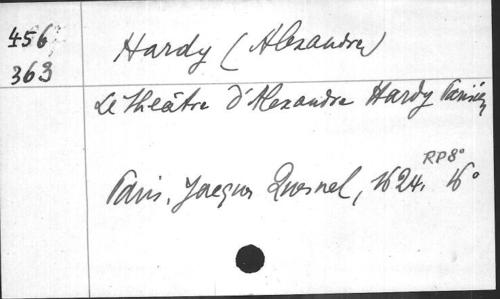 456
363
Hardy (Alexandre)
Le Théâtre d'Alexandre Hardy Parisien
RP 8°
Paris, Jacques Quesnel, 1624. 16°